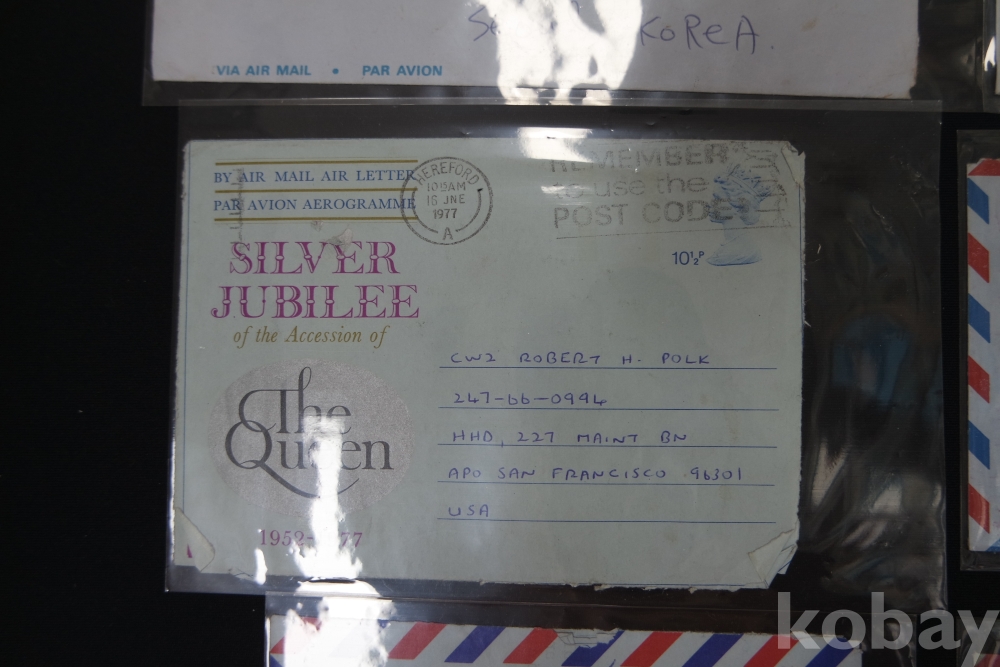 KOREA.
VIA AIR MAIL • PAR AVION
BY AIR MAIL AIR LETTER
PAR AVION AEROGRAMME
HEREFORD
10 15 AM
16 JNE
1977
A
REMEMBER
to use the
POST CODE
10½P
SILVER
JUBILEE
of the Accession of
The
Queen
1952-77
CW2 ROBERT H. POLK
247-66-0994
HHD, 227 MAINT BN
APO SAN FRANCISCO 96301
USA
kobay